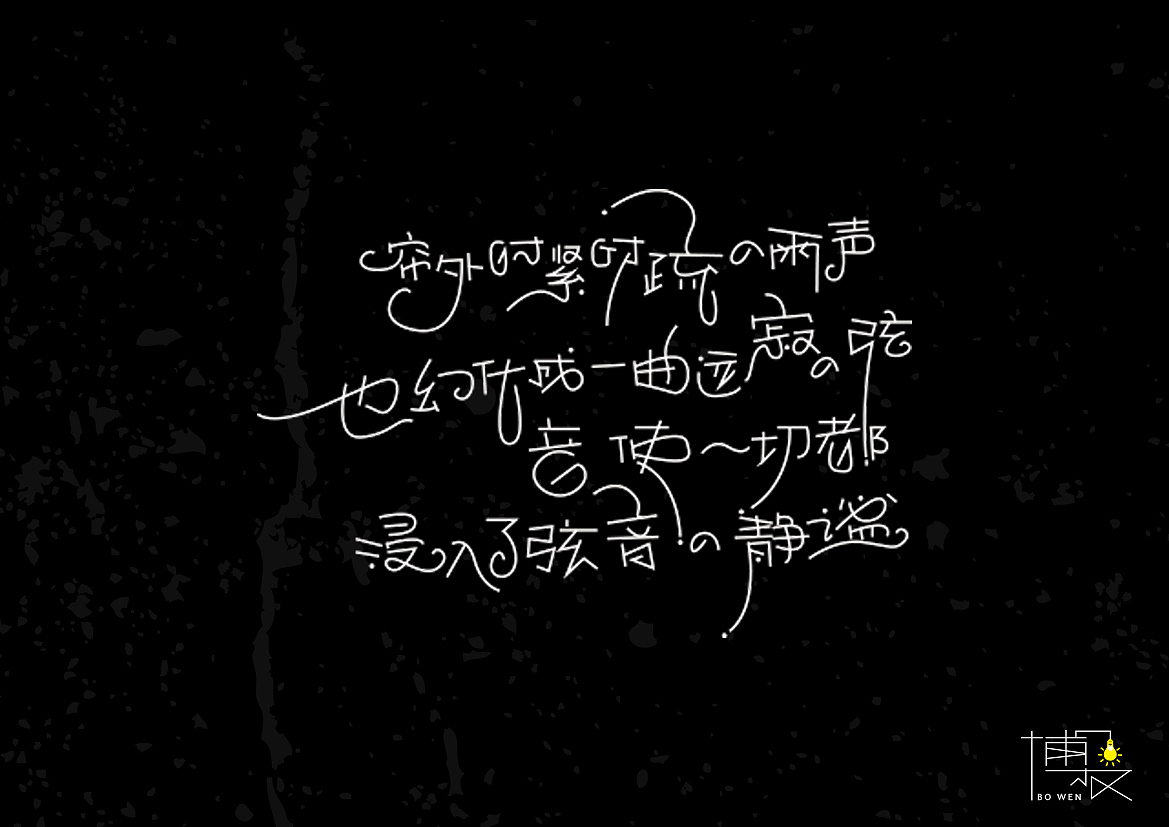 窗外时紧时疏の雨声
也幻化成一曲远寂の弦
音使一切都
浸入了弦音の静谧
博文
BO WEN